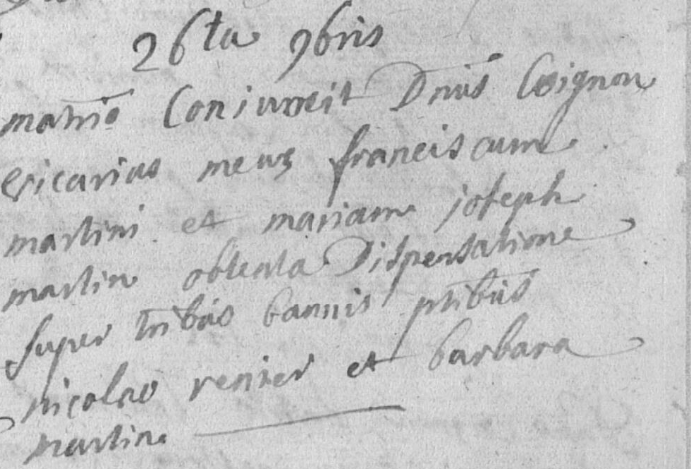 26ta 9bris
matrio Coniunxit Dnus Coignon
vicarius meus franciscum
martini et mariam joseph
martin obtenta Dispensatione
super tribus bannis ptibus
nicolao renier et barbara
martin